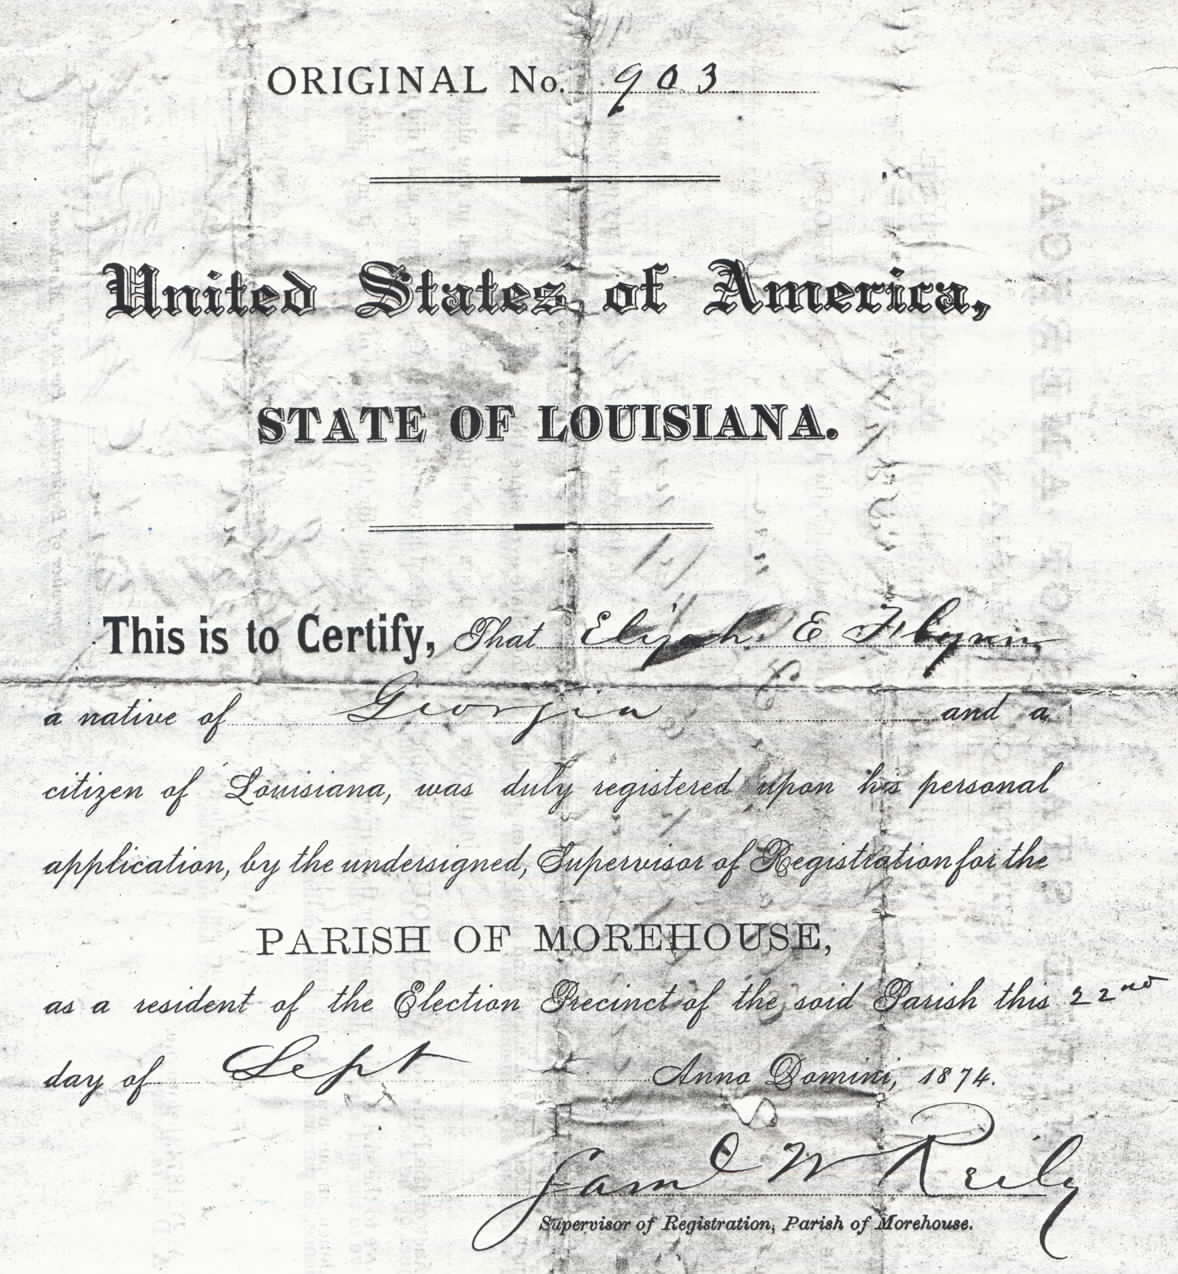 ORIGINAL No. 903
United States of America,
STATE OF LOUISIANA.
This is to Certify, That Elijah E Flynn
a native of Georgia and a
citizen of Louisiana, was duly registered upon his personal
application, by the undersigned, Supervisor of Registration for the
PARISH OF MOREHOUSE,
as a resident of the Election Precinct of the said Parish this 22nd
day of Sept Anno Domini, 1874.
Saml W Reily
Supervisor of Registration, Parish of Morehouse.